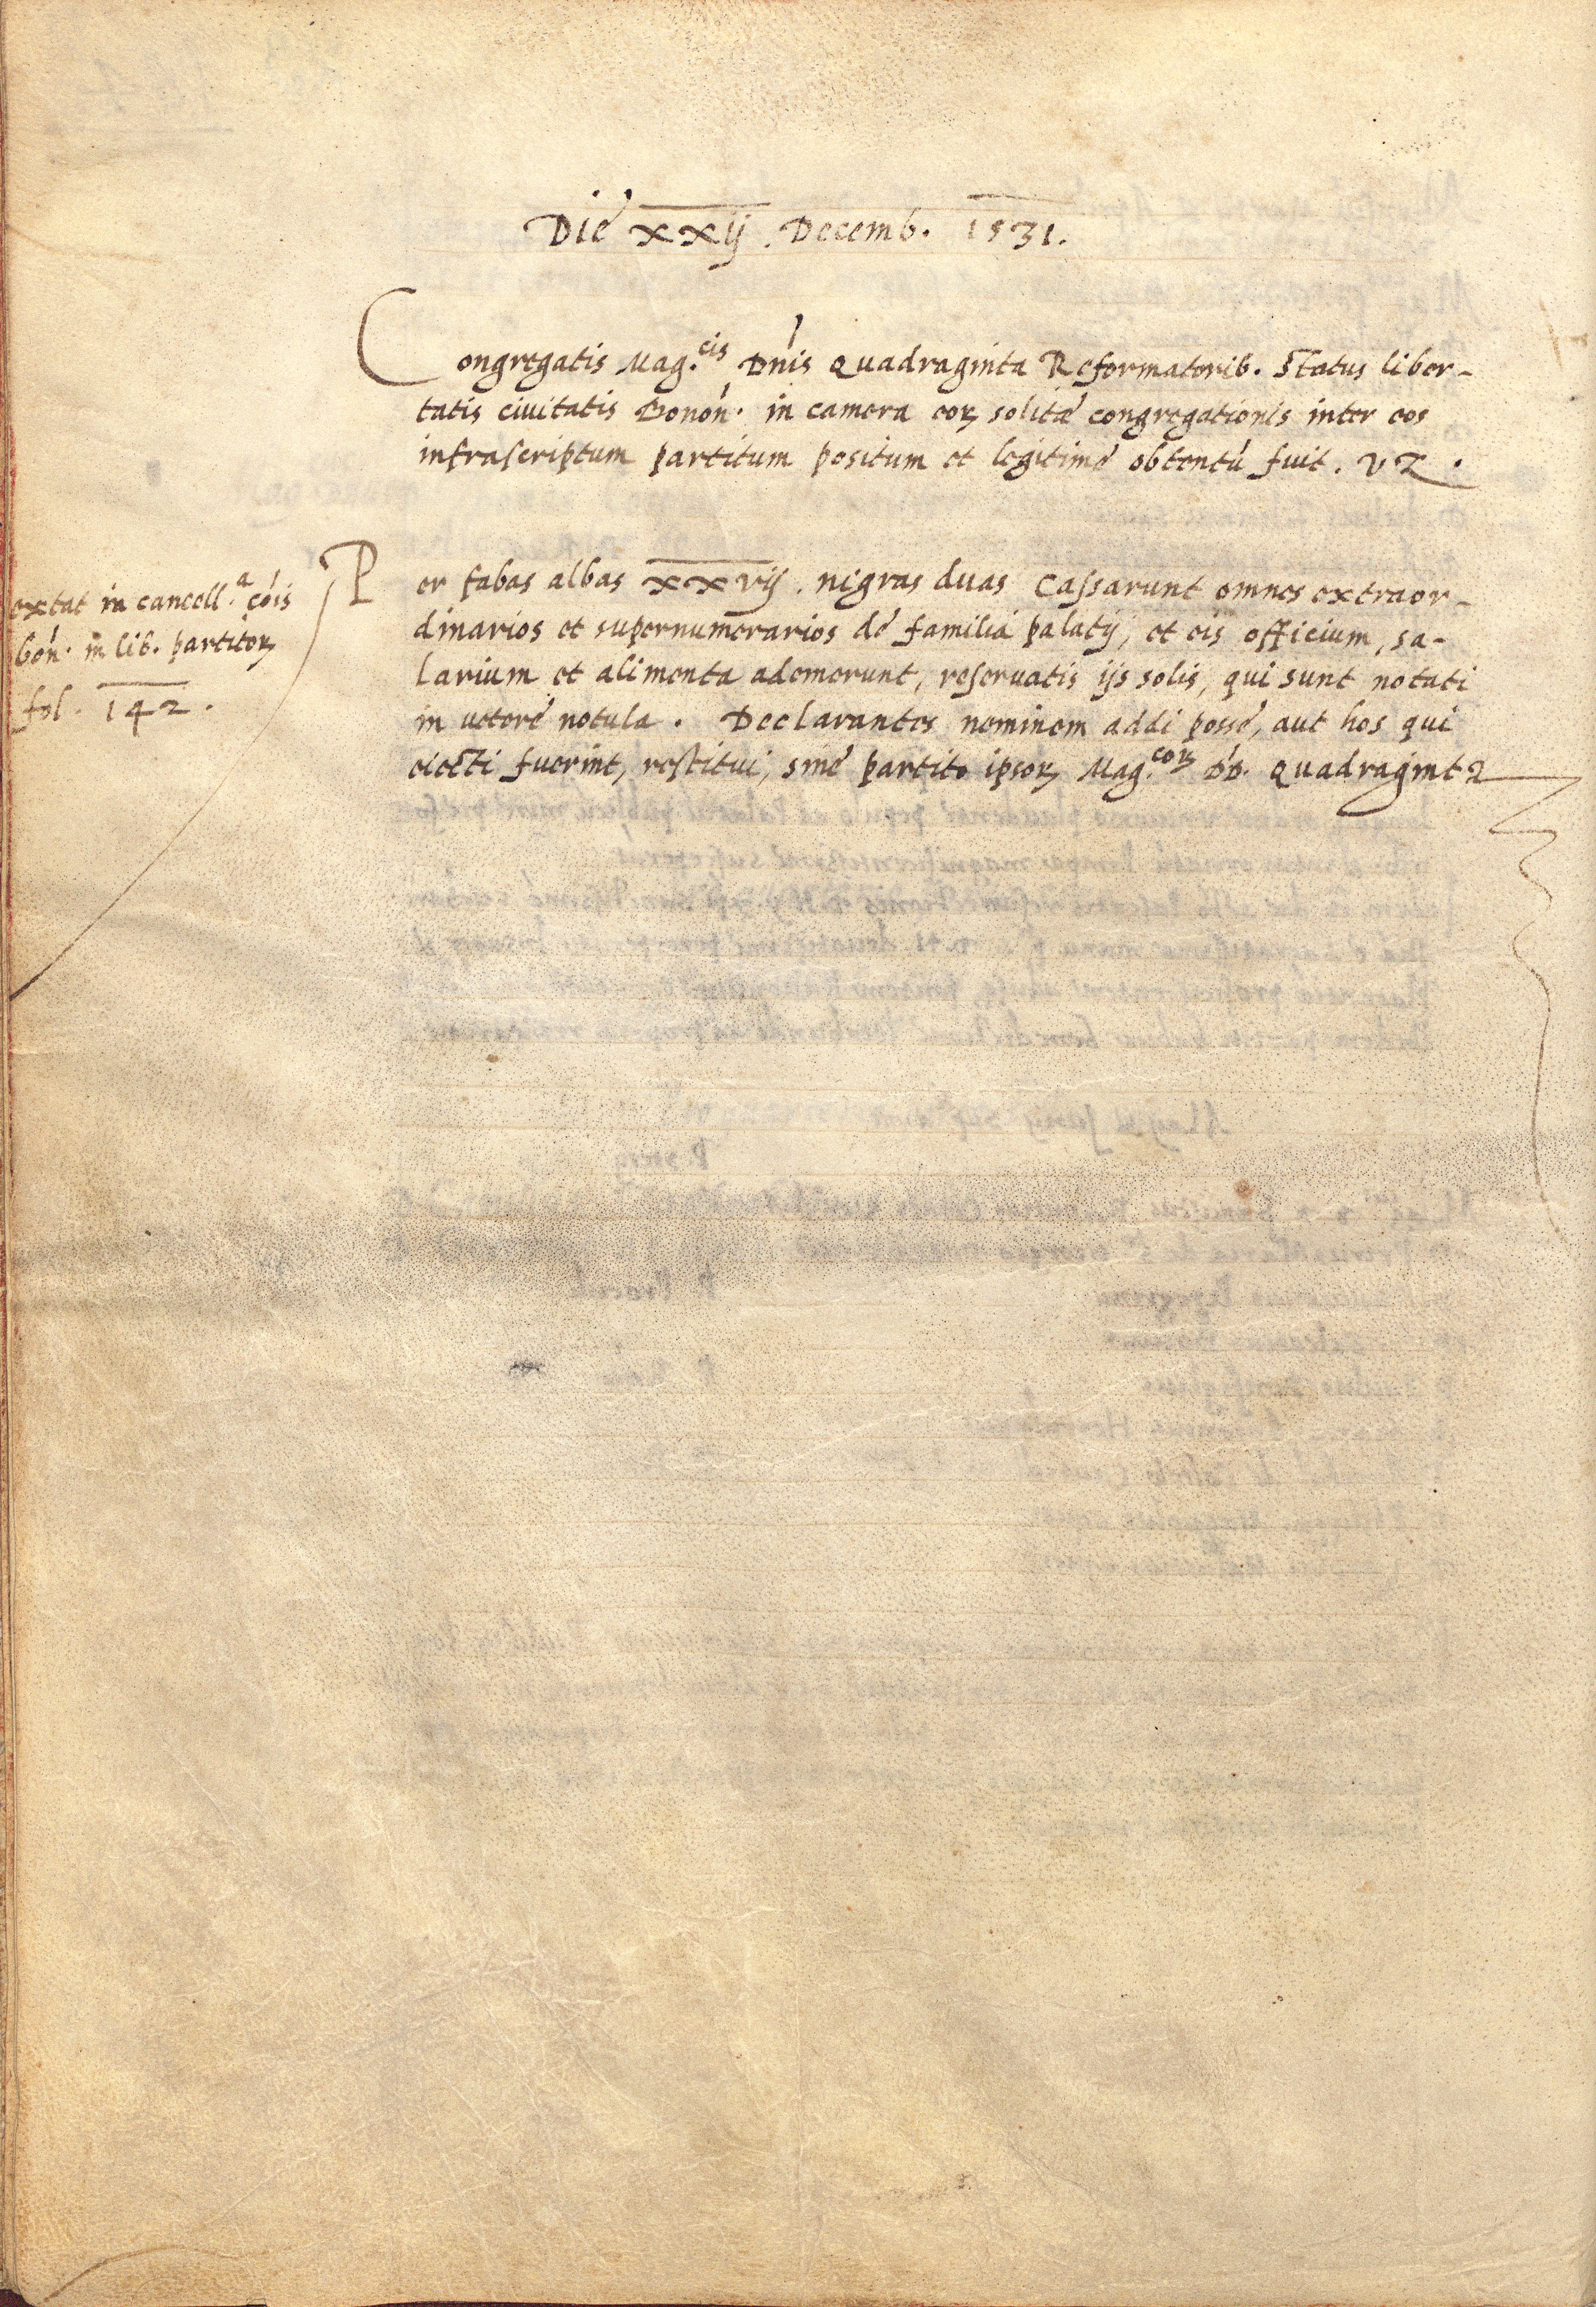 Die xxij. Decemb. 1531.
Congregatis Mag.cis Dnis Quadraginta Reformatorib. Status liber-
tatis ciuitatis Bonon. in camera eoꝝ solitae congregationis inter eos
infrascriptum partitum positum et legitime obtentu fuit. vz.
extat in cancell.a cois
bon. in lib. partitoꝝ
fol. 142.
Per fabas albas xxvij. nigras duas Cassarunt omnes extraor-
dinarios et supernumerarios de familia palatij, et eis officium, sa-
larium et alimenta ademerunt, reseruatis ijs solis, qui sunt notati
in vetere notula. Declarantes neminem addi posse, aut hos qui
eiecti fuerint, restitui, sine partito ipsoꝝ Mag.coꝝ DD. Quadraginta